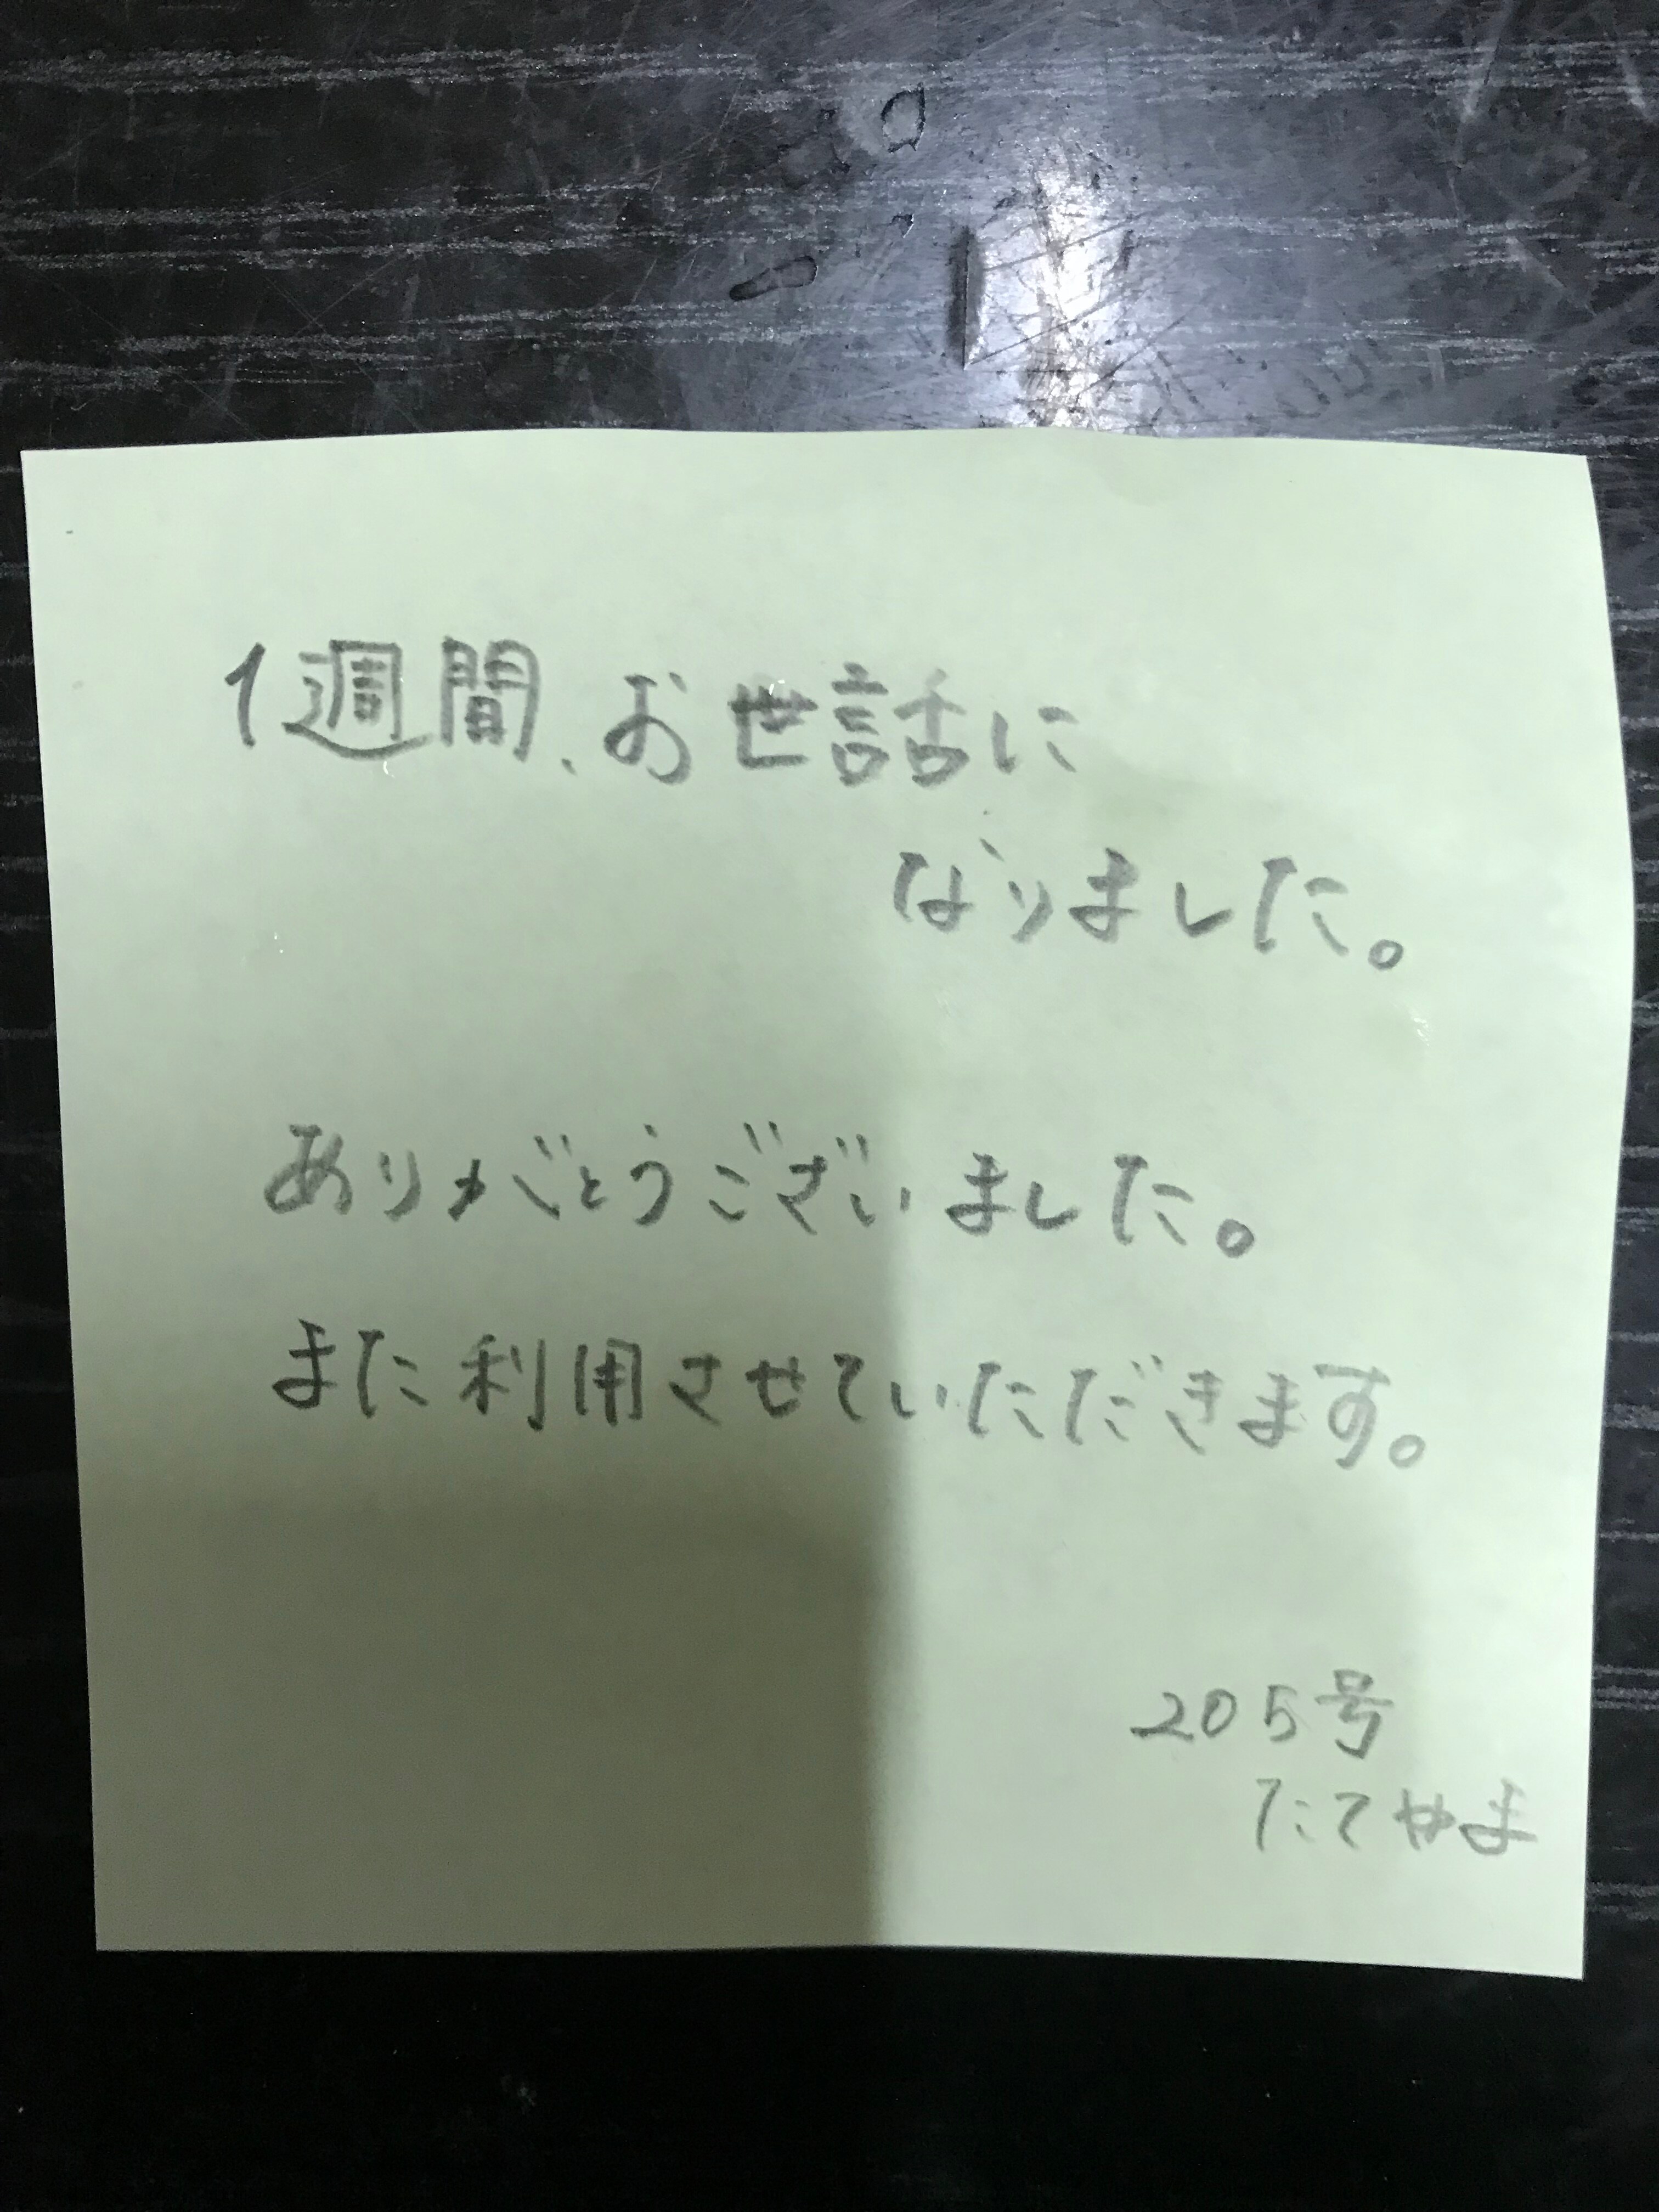 1週間、お世話に
なりました。
ありがとうございました。
また利用させていただきます。
205号
たてやま